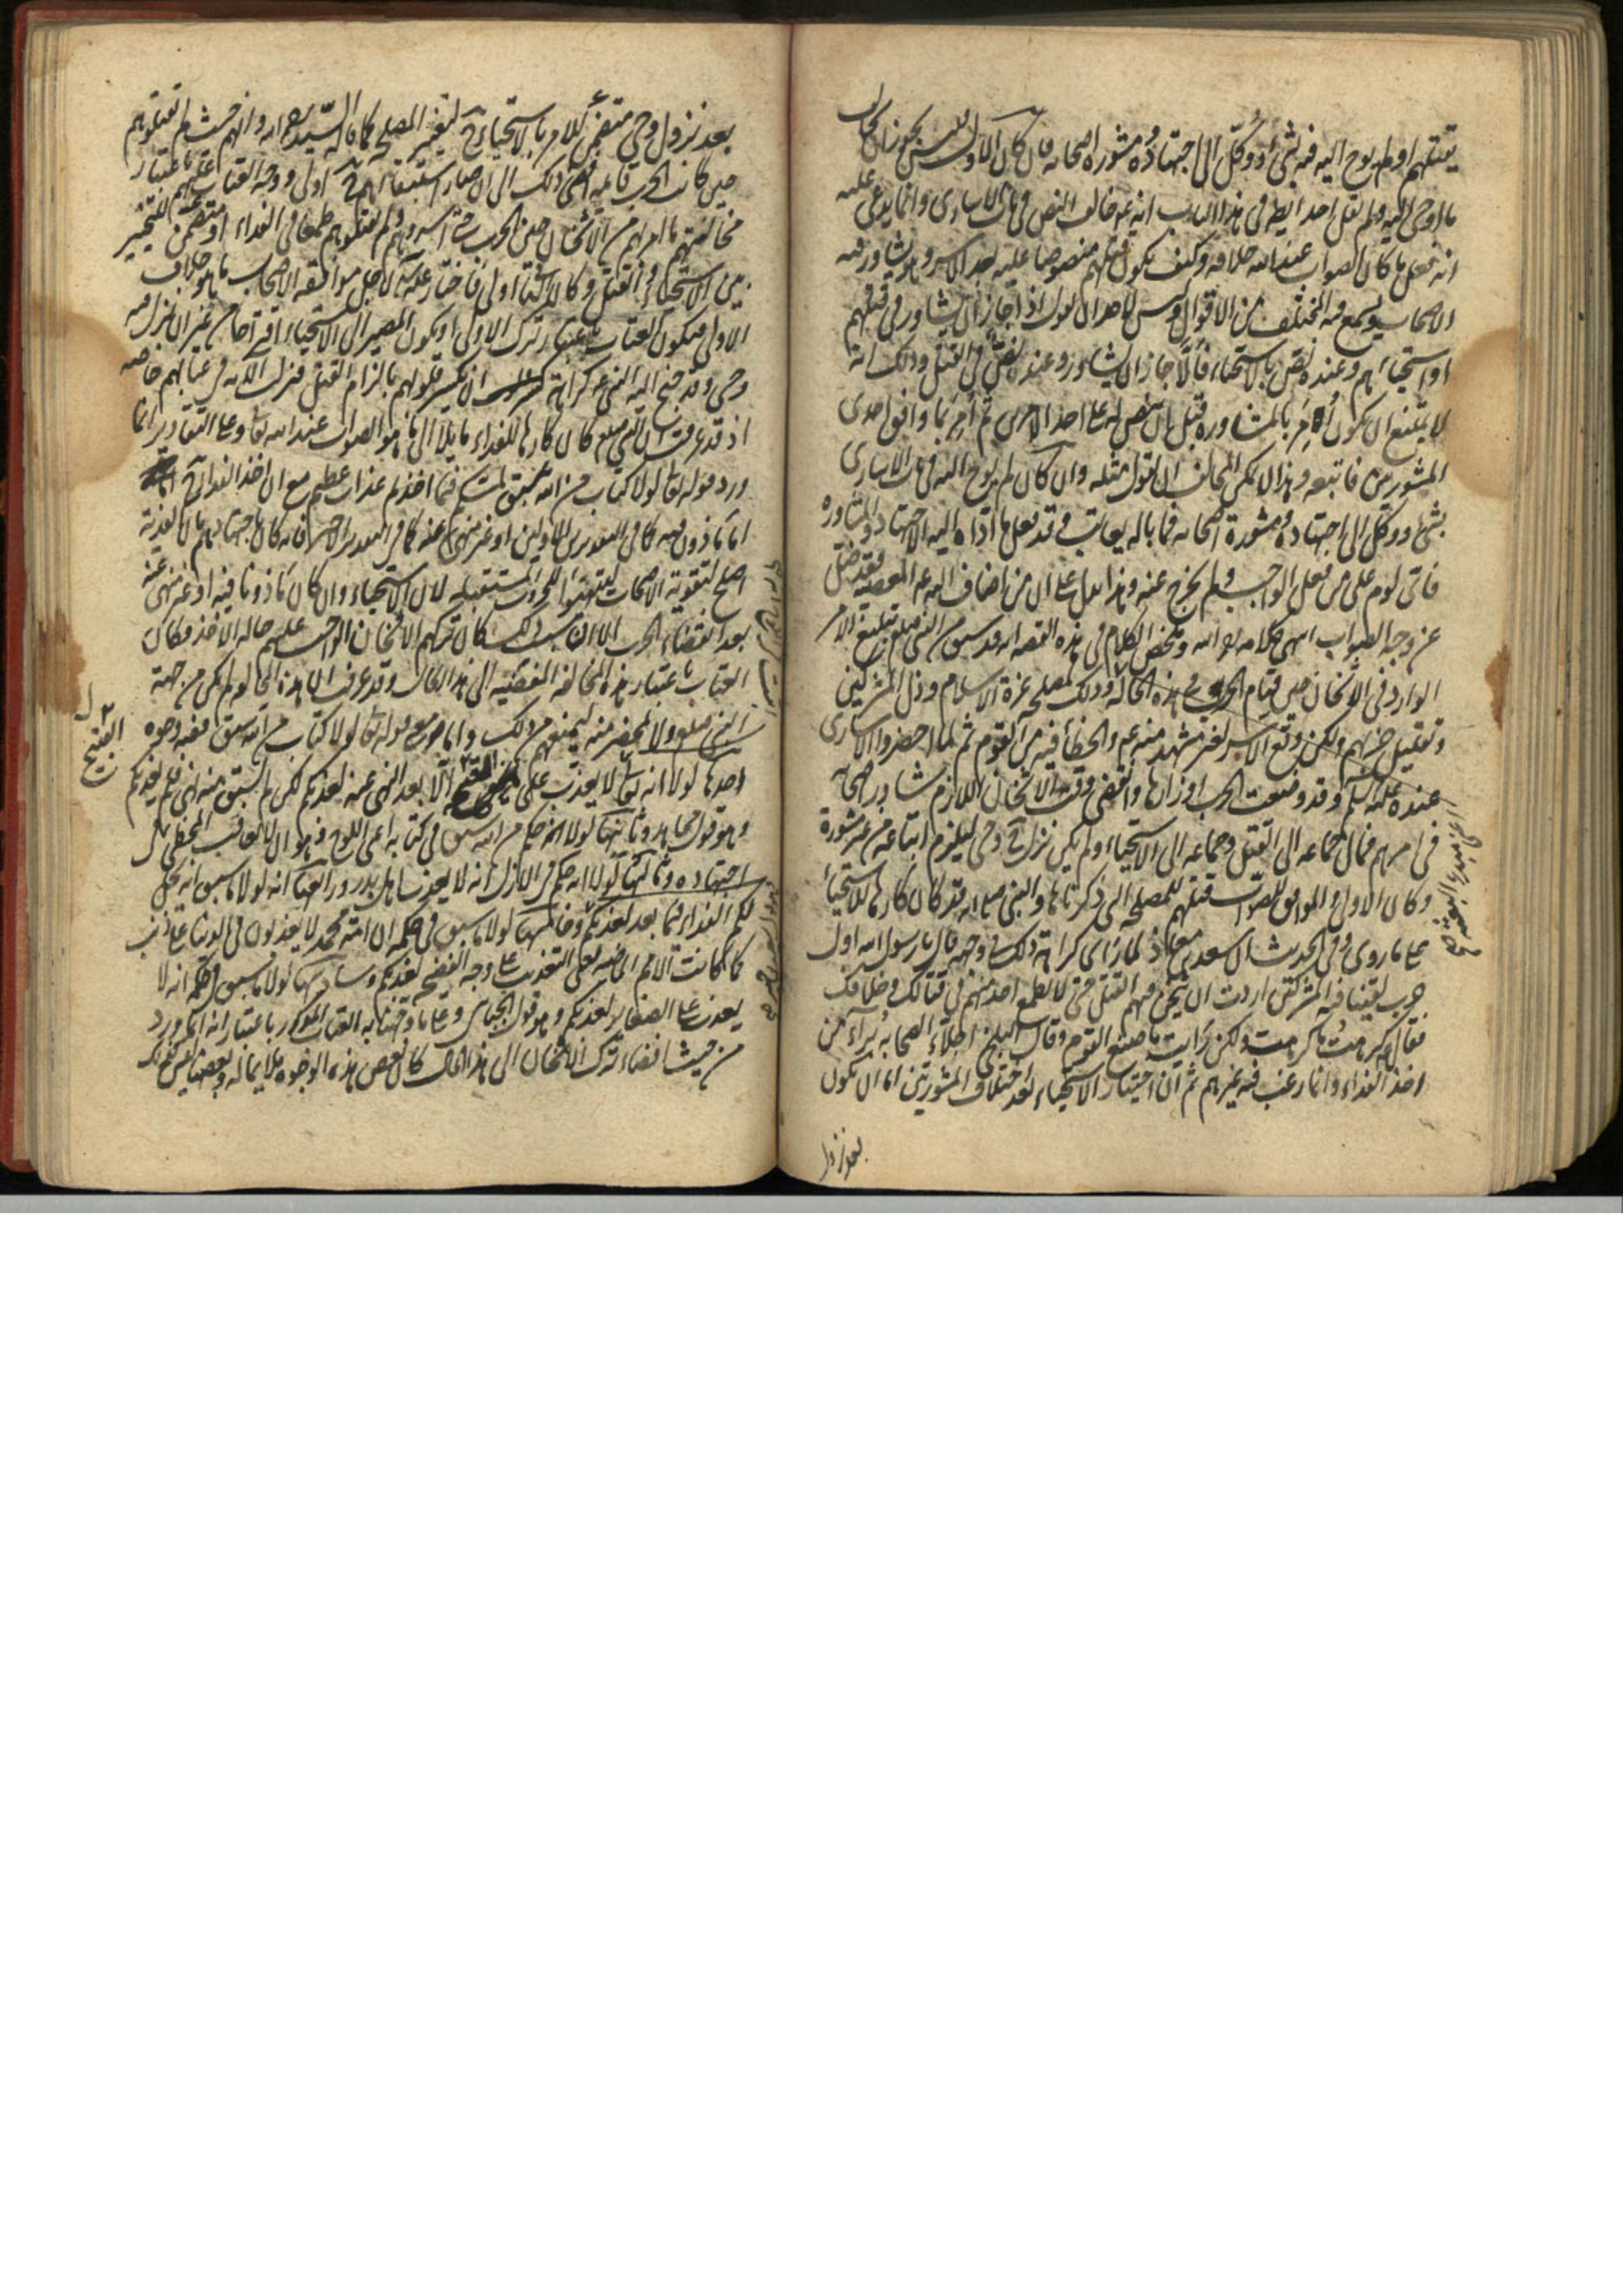 يقتلهم او لم يوح اليه فيه بشئ ووُكّل الى اجتهاده ومشورة اصحابه فان كان الاول فليس يجوز ان يخالف
ما اوحي اليه ولم يقل احد ايضا في هذا الباب انه عم خالف النص في باب الاسارى وانما يدعى عليه
انه فعل ما كان الصواب عند الله خلافه وكيف يكون قتلهم منصوصا عليه بعد الاسر وهو يشاور فيه
الاصحاب ويسمع فيه المختلف من الاقوال وليس لاحد ان يقول اذا جاز ان يشاور في قتلهم
او استحيائهم وعنده نص بالاستحياء فألّا جاز ان يشاور وعنده نصّ في القتل وذلك انه
لا يمتنع ان يكون أُمِرَ بالمشاورة قبل ان ينص له على احد الامرين ثم أُمِرَ بما وافق احدى
المشورتين فاتبعه وهذا لا يمكن المخالف ان يقول مثله وان كان لم يوح اليه في باب الاسارى
بشئ ووكل الى اجتهاده ومشورة اصحابه فما باله يعاتب وقد فعل ما اداه اليه الاجتهاد والمشاورة
فاىّ لوم على من فعل الواجب ولم يخرج عنه وهذا يدل على ان من اضاف اليه عم المعصية فقد ضلّ
عن وجه الصواب انتهى كلامه ره وملخص الكلام في هذه القصة انه قد سبق من النبي صلع تبليغ الامر
الوارد في الاثخان حين قيام الحرب في هذه الحالة وذلك لمصلحة عزة الاسلام وذل المشركين
وتقليل حزبهم ولكن وقع الاسر بغير مشهد منه عم والخطأ فيه من القوم ثم لما احضروا الاسارى
عنده عليه السلم وقد وضعت الحرب اوزارها وانقضى وقت الاثخان اللازم شاور اصحابه
في امرهم فمال جماعة الى القتل وجماعة الى الاستحياء ولم يكن نزل وحي ليلزم اتباعه من غير مشورة
وكان الاولى والموافق للصواب قتلهم للمصلحة التي ذكرناها والنبي صلع قد كان كارها للاستحياء
على ما روى وفي الحديث ان سعد بن معاذ لما رأى كراهة ذلك في وجهه قال يا رسول الله اول
حرب لقينا فيه المشركين اردت ان يثخن فيهم القتل حتى لا يطمع احد منهم في قتالك وخلافك
فقال كرهتُ ما كرهتَ ولكن رأيت ما صنع القوم وقال البلخي اجلّاء الصحابة بُرَآء من
اخذ الفداء وانما رغب فيه غيرهم ثم ان اختيار الاستحياء بعد اختلاف المشورتين اما ان يكون
بعد نزول
بعد نزول وحي متضمن للامر بالاستحياء لتغير المصلحة كما قاله السيد ره وانهم حيث لم يقتلوهم
حين كانت الحرب قائمة افضى ذلك الى ان صار استبقائهم اولى ووجه العتاب عليهم باعتبار
مخالفتهم ما امرهم من الاثخان حين الحرب حتى اسروهم ولم يقتلوهم طمعا في الفداء او متضمن للتخيير
بين الاستحياء والقتل وكان القتل اولى فاختار عليه لاجل موافقة الاصحاب ما هو خلاف
الاولى فيكون العتاب باعتبار ترك الاولى او يكون المصير الى الاستحياء من غير ان ينزل فيه
وحي وقد جنح اليه النبي عم كراهة ان يكسر قلوبهم بالزام القتل فنزلت الآية في عتابهم خاصة
اذ قد عرفت ان النبي صلع كان كارها للفداء مايلا الى ما هو الصواب عند الله تعا وعلى التقادير انما
ورد قوله تعا لولا كتاب من الله سبق لمسكم فيما اخذتم عذاب عظيم مع ان اخذ الفداء
اما مأذون فيه كما في التقديرين الاولين او غير منهي عنه كما في التقدير الاخير فانه كان اجتهادهم ان الفدية
اصلح لتقوية الاصحاب ليتهيئوا للحروب المستقبلة لان الاستحياء وان كان مأذونا فيه او غير منهي عنه
بعد انقضاء الحرب الا ان سبب ذلك كان تركهم الاثخان الواجب عليهم حالة الاخذ فكان
العتاب باعتبار هذه المخالفة المفضية الى هذا الحال وقد عرفت ان هذه المخالفة لم يكن من جهة
النبي صلع ولا بمحضر منه ليمنعهم من ذلك واما معنى قوله تعا لولا كتاب من الله سبق ففيه وجوه
احدها لولا انه تعا لا يعذب على القبيح الا بعد النهي عنه لعذبكم لكن لم يسبق منه نهي فلم يعذبكم
القبيح
وهو قول مجاهد وثانيها لولا حكم من الله سبق في كتابه اعني اللوح وهو ان لا يعاقب المخطئ في
اجتهاده وثالثها لولا انه حكم في الازل انه لا يعذب اهل بدر ورابعها انه لولا ما سبق انه يحل
لكم الفداء فيما بعد لعذبكم وخامسها لولا ما سبق في حكمه ان امة محمد لا يعذبون في الدنيا على ذنب
كما كانت الامم الماضية يعني التعذيب على وجه الفضح لعذبكم وسادسها لولا ما سبق في حكمه انه لا
يعذب على الصغاير لعذبكم وهو قول الجبائي وعلى ما وجّهنا به العتاب المذكور باعتبار انه انما ورد
من حيث افضاء ترك الاثخان الى هذا الحال كان بعض هذه الوجوه ملايما له وبعضها ليس كذلك